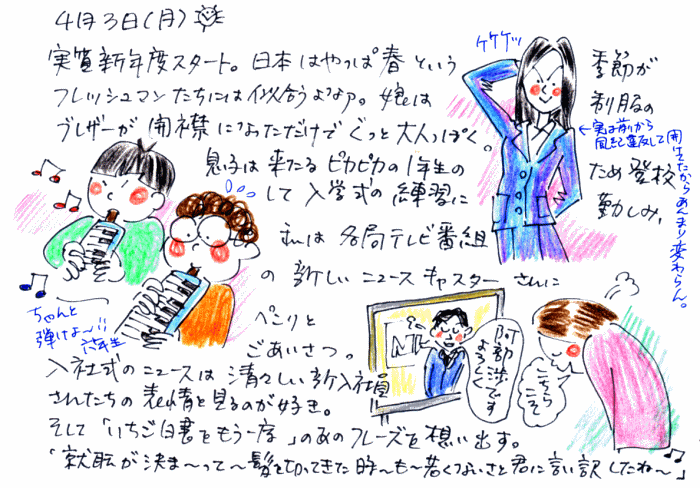 4月3日(月)
実質新年度スタート。日本はやっぱ春という季節が
フレッシュマンたちには似合うよなァ。娘は制服の
ブレザーが開襟になっただけでぐっと大人っぽく。
息子は来たるピカピカの1年生のため登校
して入学式の練習に勤しみ、
私は各局テレビ番組
の新しいニュースキャスターさんに
ぺこりと
ごあいさつ。
入社式のニュースは清々しい新入社員
さんたちの表情を見るのが好き。
そして「いちご白書をもう一度」のあのフレーズを想い出す。
「就職が決ま〜って〜髪を切ってきた時〜も〜若くないさと君に言い訳したね〜」
ケケケッ
←実は前から
風紀違反して開けてたからあんまり変わらん。
ちゃんと
弾けよ〜!!
六年生
阿部渉です
よろしく
こちら
こそ